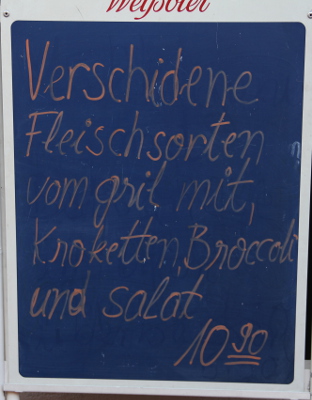 Weysbier
Verschidene
Fleischsorten
vom gril mit,
Kroketten, Broccoli
und salat
10 90